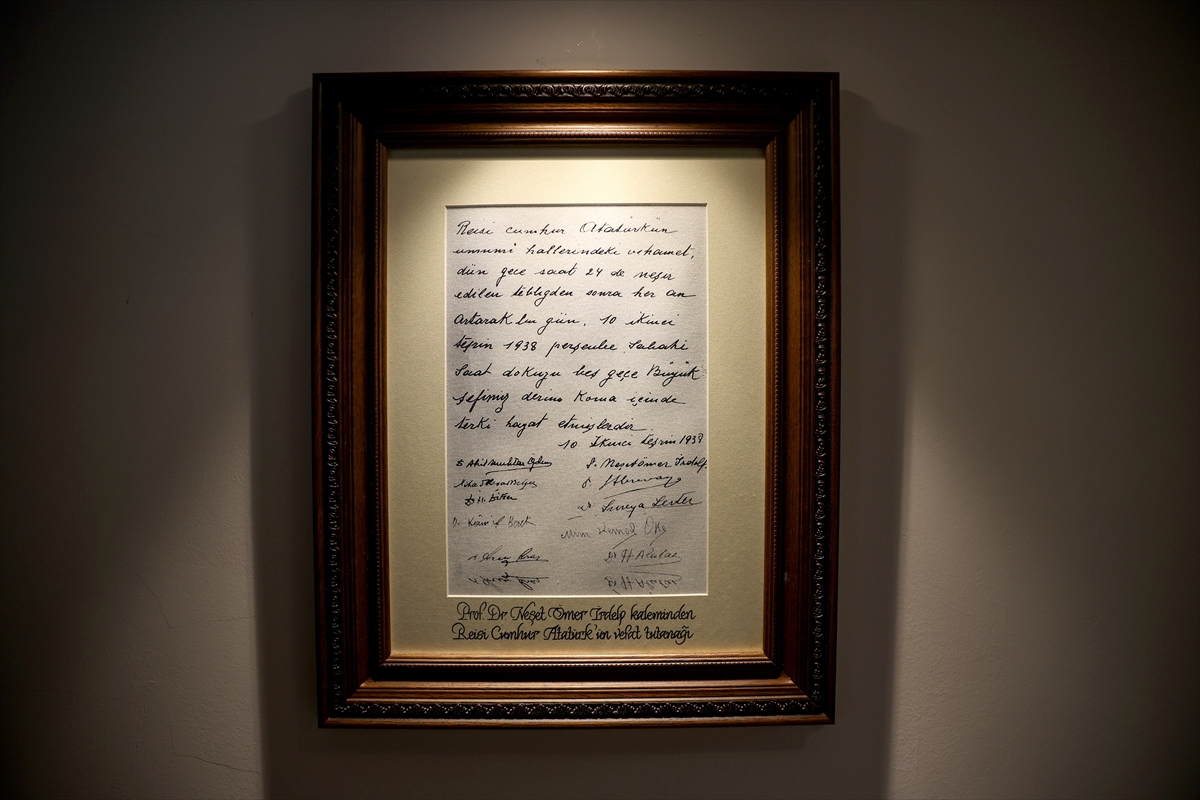 Reisi cumhur Atatürkün
umumi hallerindeki vehamet,
dün gece saat 24 de neşir
edilen tebligden sonra her an
artarak bu gün, 10 ikinci
teşrin 1938 perşembe sabahi
saat dokuzu beş geçe Büyük
şefimiz derin koma içinde
terki hayat etmişlerdir.
10 İkinci teşrin 1938
Dr. Neşet Ömer İrdelp
Dr Süreya Serter
Mim Kemal Öke
Prof. Dr. Neşet Ömer İrdelp kaleminden
Reisi Cumhur Atatürk'ün vefat tutanağı